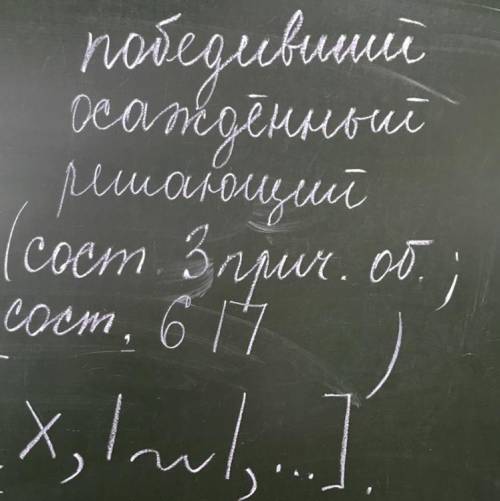 победивший
осаждённый
решающий
(сост. 3 прич. об.;
сост. 6 П)
X, |~|, ...].